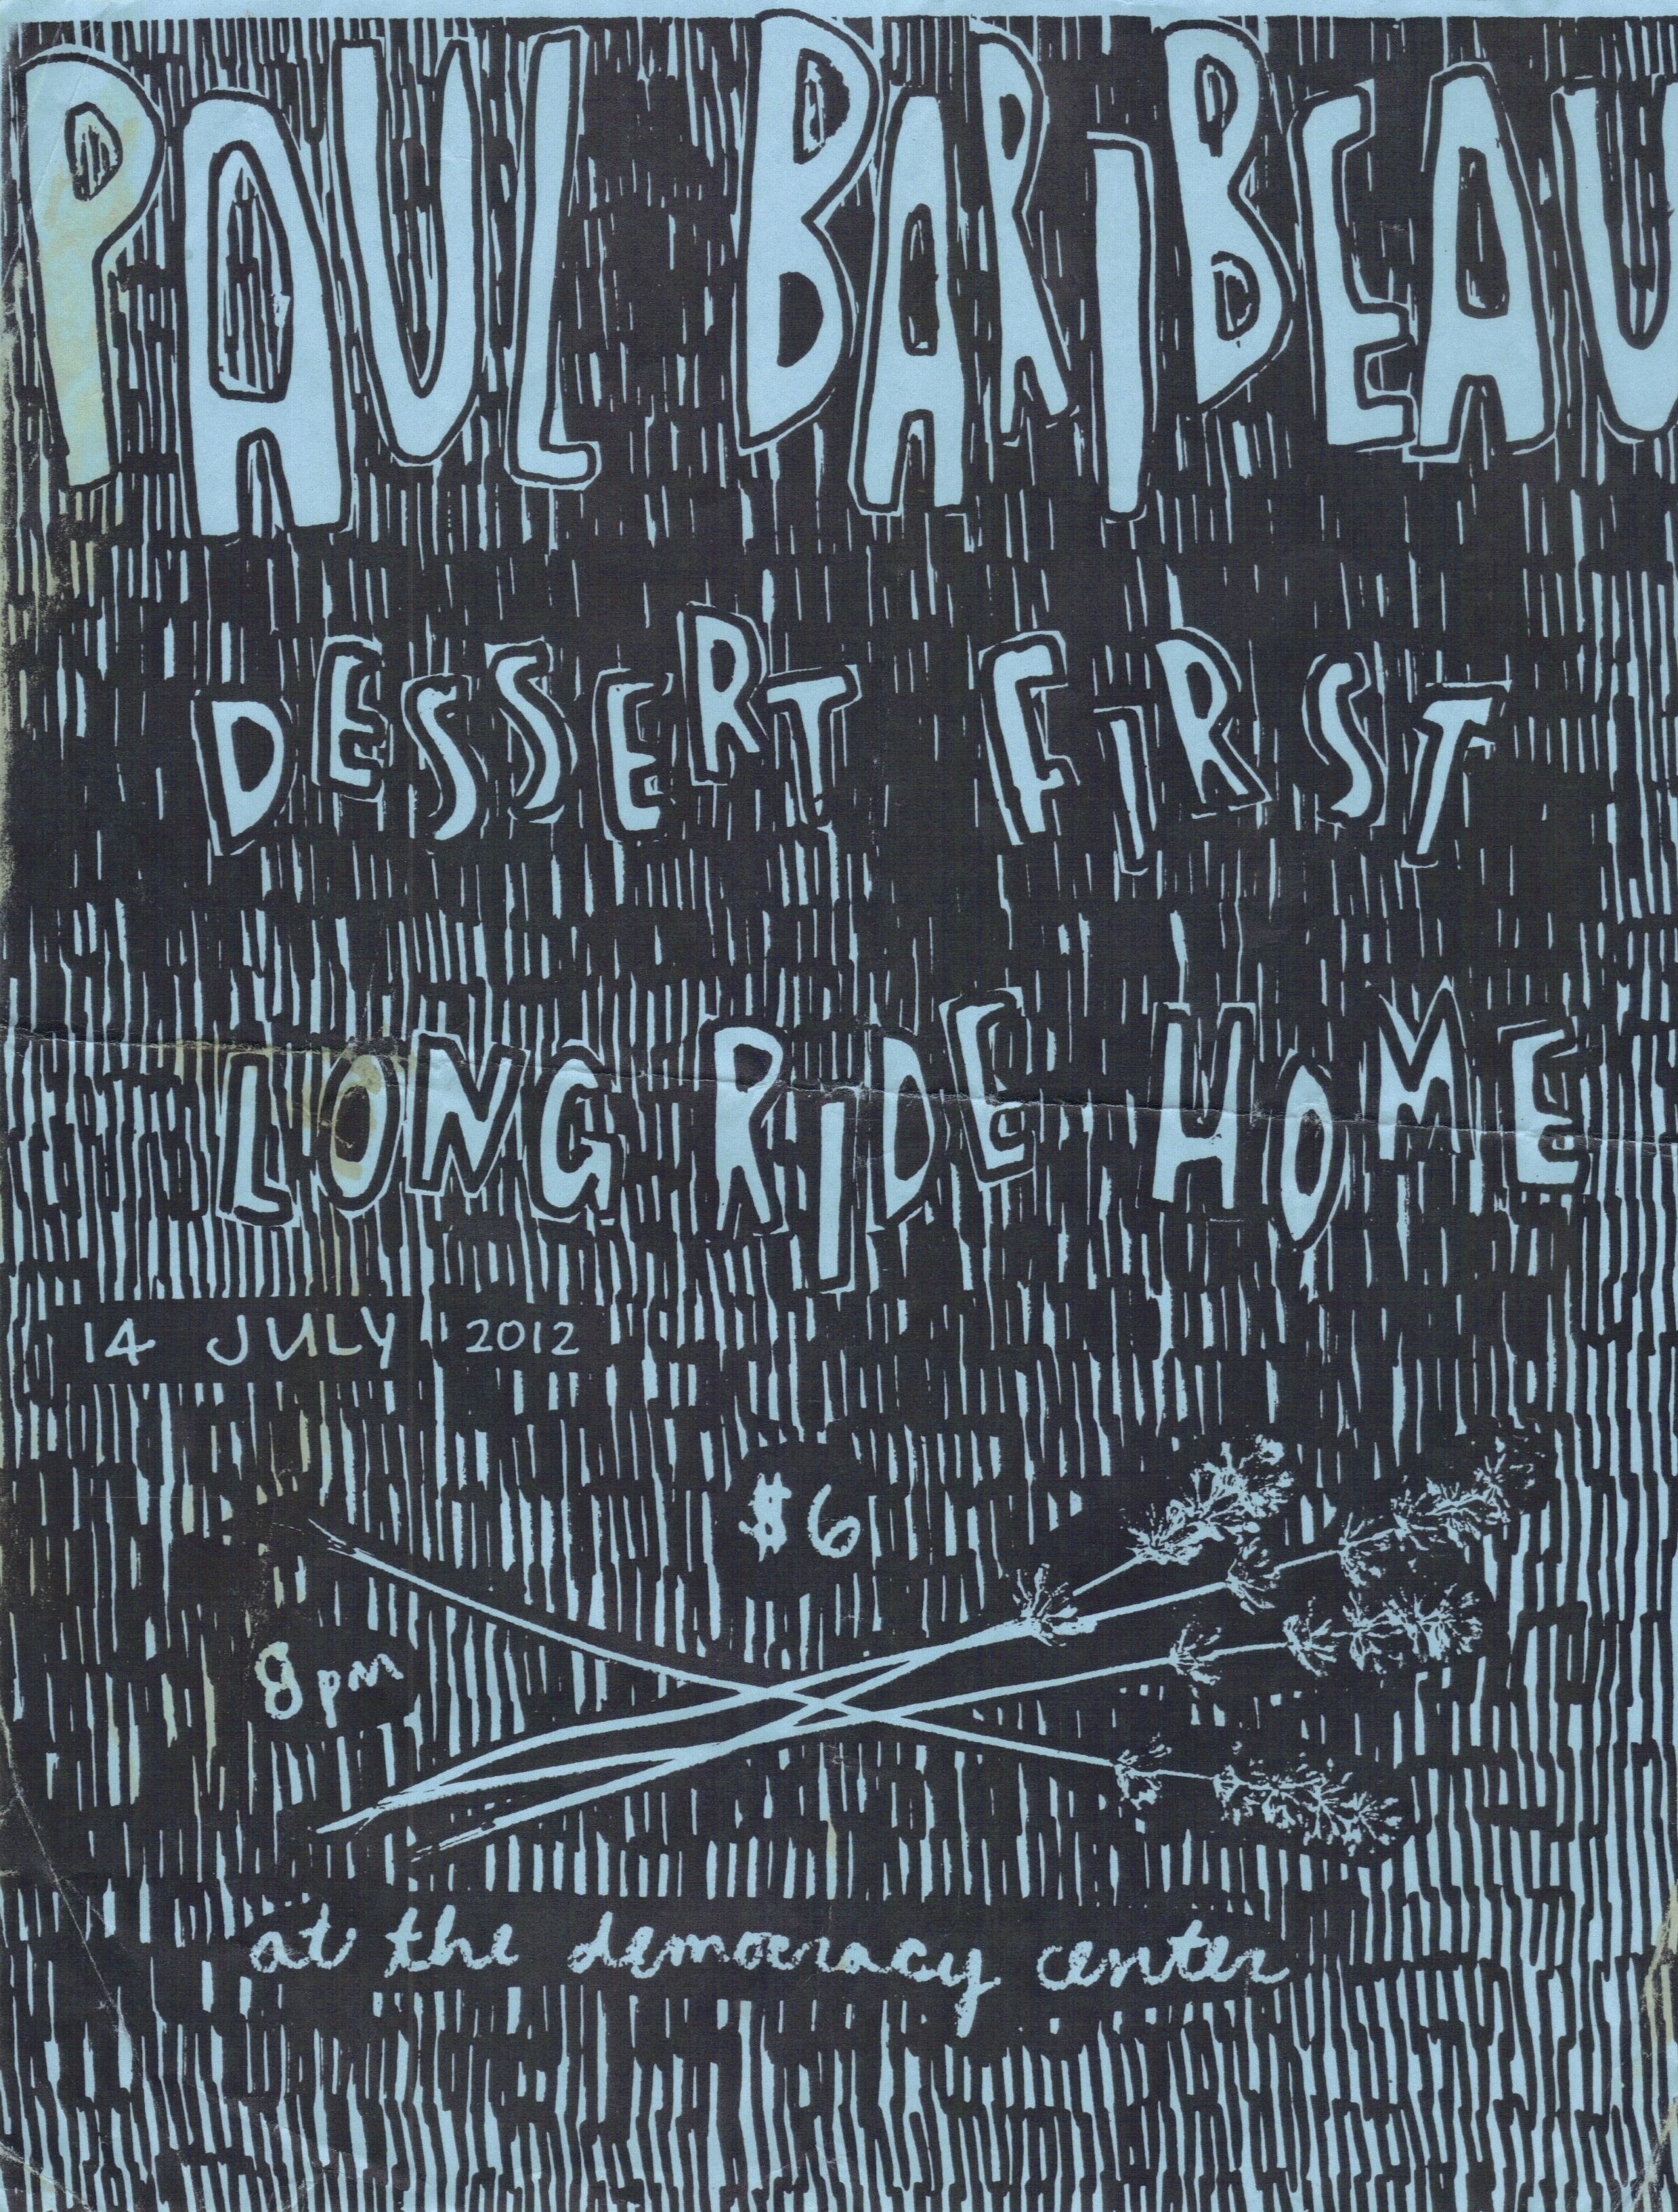 PAUL BARIBEAU
DESSERT FIRST
LONG RIDE HOME
14 JULY 2012
$6
8pm
at the democracy center